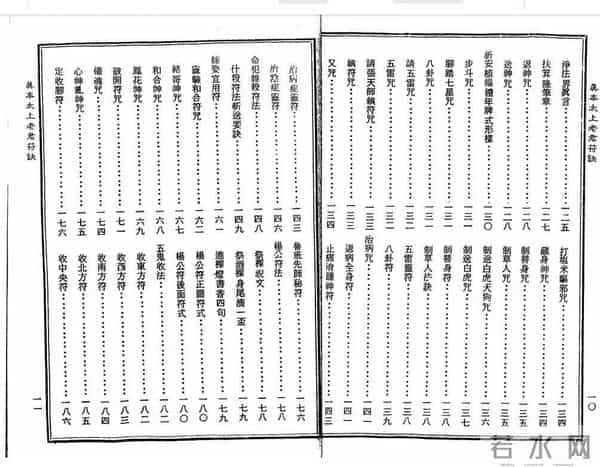 眞本太上老君符訣
淨法界眞言・・・一二五
扶箕隆筆章・・・一二七
退神咒・・・一二八
送神咒・・・一二八
祈安植福禮年神式形樣・・・一三〇
步斗咒・・・一三一
腳踏七星咒・・・一三一
八卦咒・・・一三一
請五雷咒・・・一三二
五雷咒・・・一三三
請張天師鎮符咒・・・一三三
鎮符咒・・・一三四
又咒・・・一三四
打鹽米驅邪咒・・・一三四
藏身神咒・・・一三四
制替身咒・・・一三五
制草人咒・・・一三五
制送白虎天狗咒・・・一三六
制送白虎咒・・・一三七
制草人法訣・・・一三七
制替身符・・・一三八
五雷靈符・・・一三八
八卦符・・・一三九
治病咒・・・一四一
退病全身符・・・一四一
止痛治神符・・・一四三
一〇
治病症靈符・・・一四三
治陰症靈符・・・一四六
命犯雜殺符法・・・一四八
什段符法祈送要訣・・・一四九
嫁娶宜用符・・・一六一
靈驗和合符咒・・・一六二
結哥神咒・・・一六七
和合神咒・・・一六八
鳳花神咒・・・一六九
破開符・・・一七一
催魂咒・・・一七四
心亂神咒・・・一七五
定收腳符・・・一七六
魯班先師秘符・・・一七六
楊公符法・・・一七八
祭桿祝文・・・一七八
祭酒桿身尾澆一盃・・・一七九
進桿燈書寄四句・・・一七九
楊公符正圖符式・・・一八〇
楊公符後面符式・・・一八〇
五鬼收法・・・一八一
收東方符・・・一八二
收西方符・・・一八三
收南方符・・・一八四
收北方符・・・一八五
收中央符・・・一八六
一一
眞本太上老君符訣
若水网